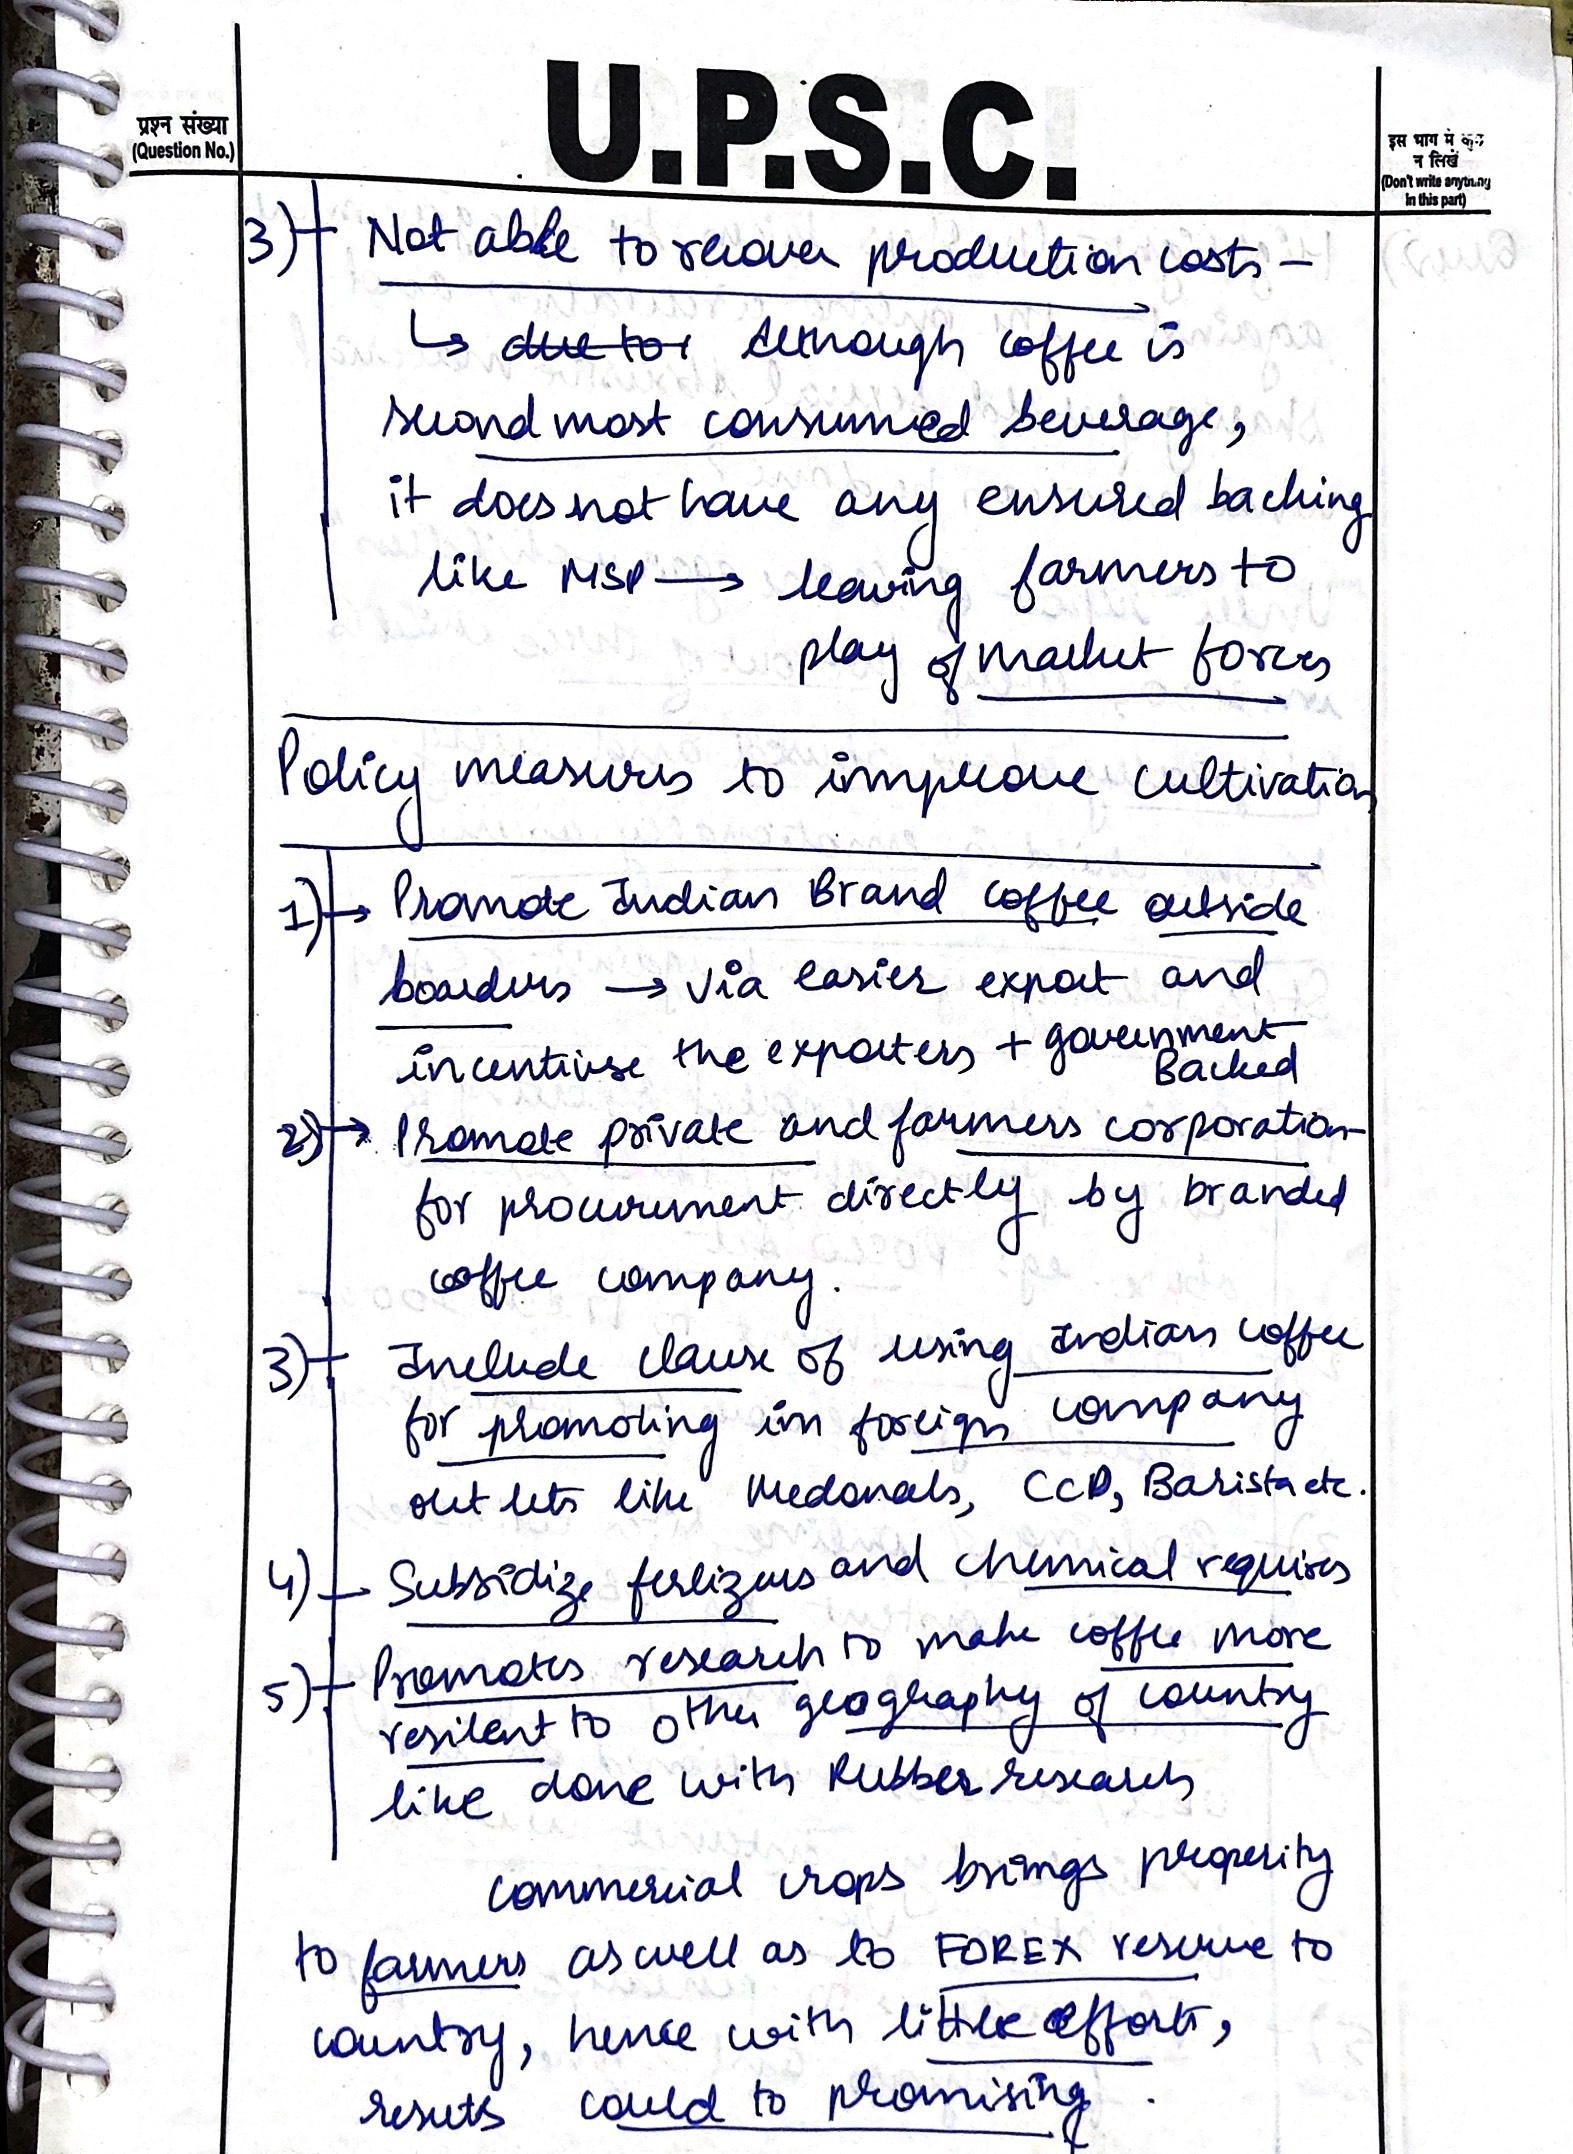 U.P.S.C.
प्रश्न संख्या
(Question No.)
इस भाग में कुछ
न लिखें
(Don't write anything
in this part)
3) Not able to recover production costs –
↳ due to Although coffee is
second most consumed beverage,
it does not have any ensured backing
like MSP → leaving farmers to
play of market forces
Policy measures to improve cultivation
1) → Promote Indian Brand coffee outside
boarders → via easier export and
incentivise the exporters + government
Backed
2) → Promote private and farmers corporation
for procurement directly by branded
coffee company.
3) Include clause of using Indian coffee
for promoting in foreign company
outlets like Mcdonals, CCD, Barista etc.
4) Subsidize ferlizers and chemical requires
5) Promotes research to make coffee more
resilent to other geography of country
like done with Rubber research
commercial crops brings properity
to farmers as well as to FOREX reserve to
country, hence with little effort,
resuts could to promising.